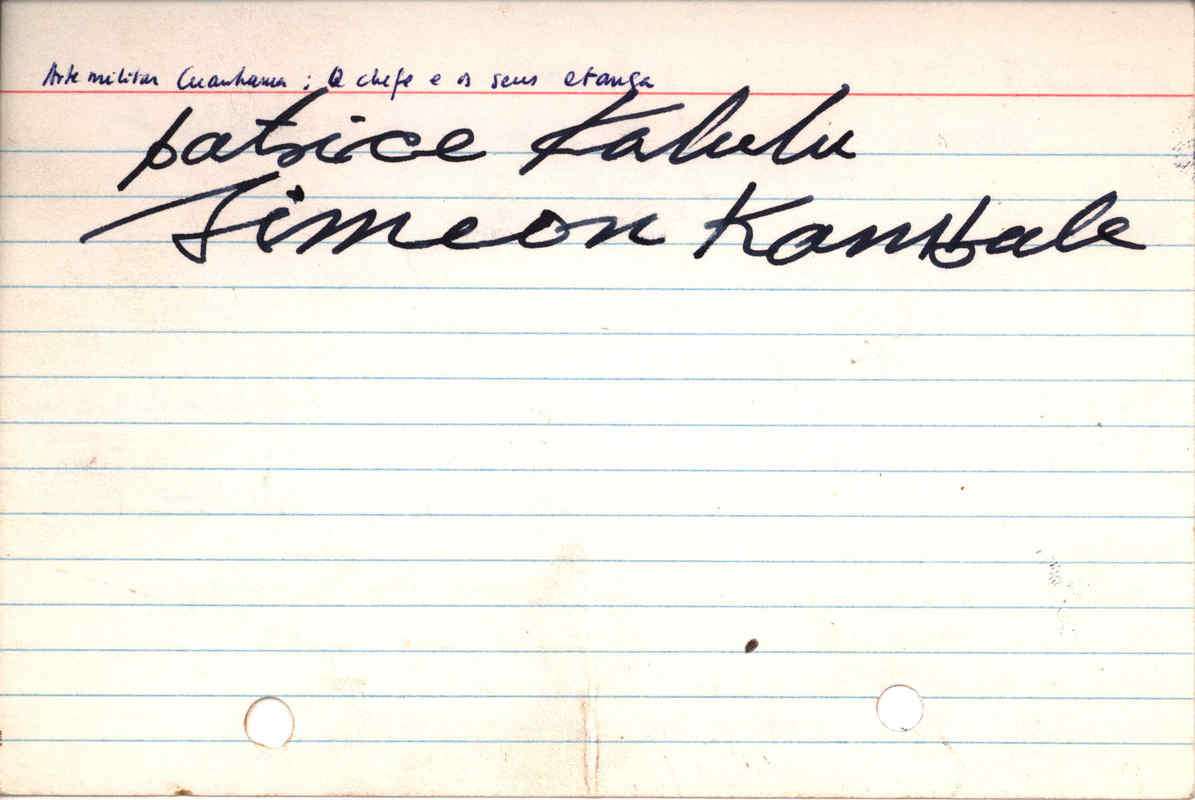 Arte militar Cuanhama : O chefe e os seus etanga
patrice Kalulu
Simeon Kambale